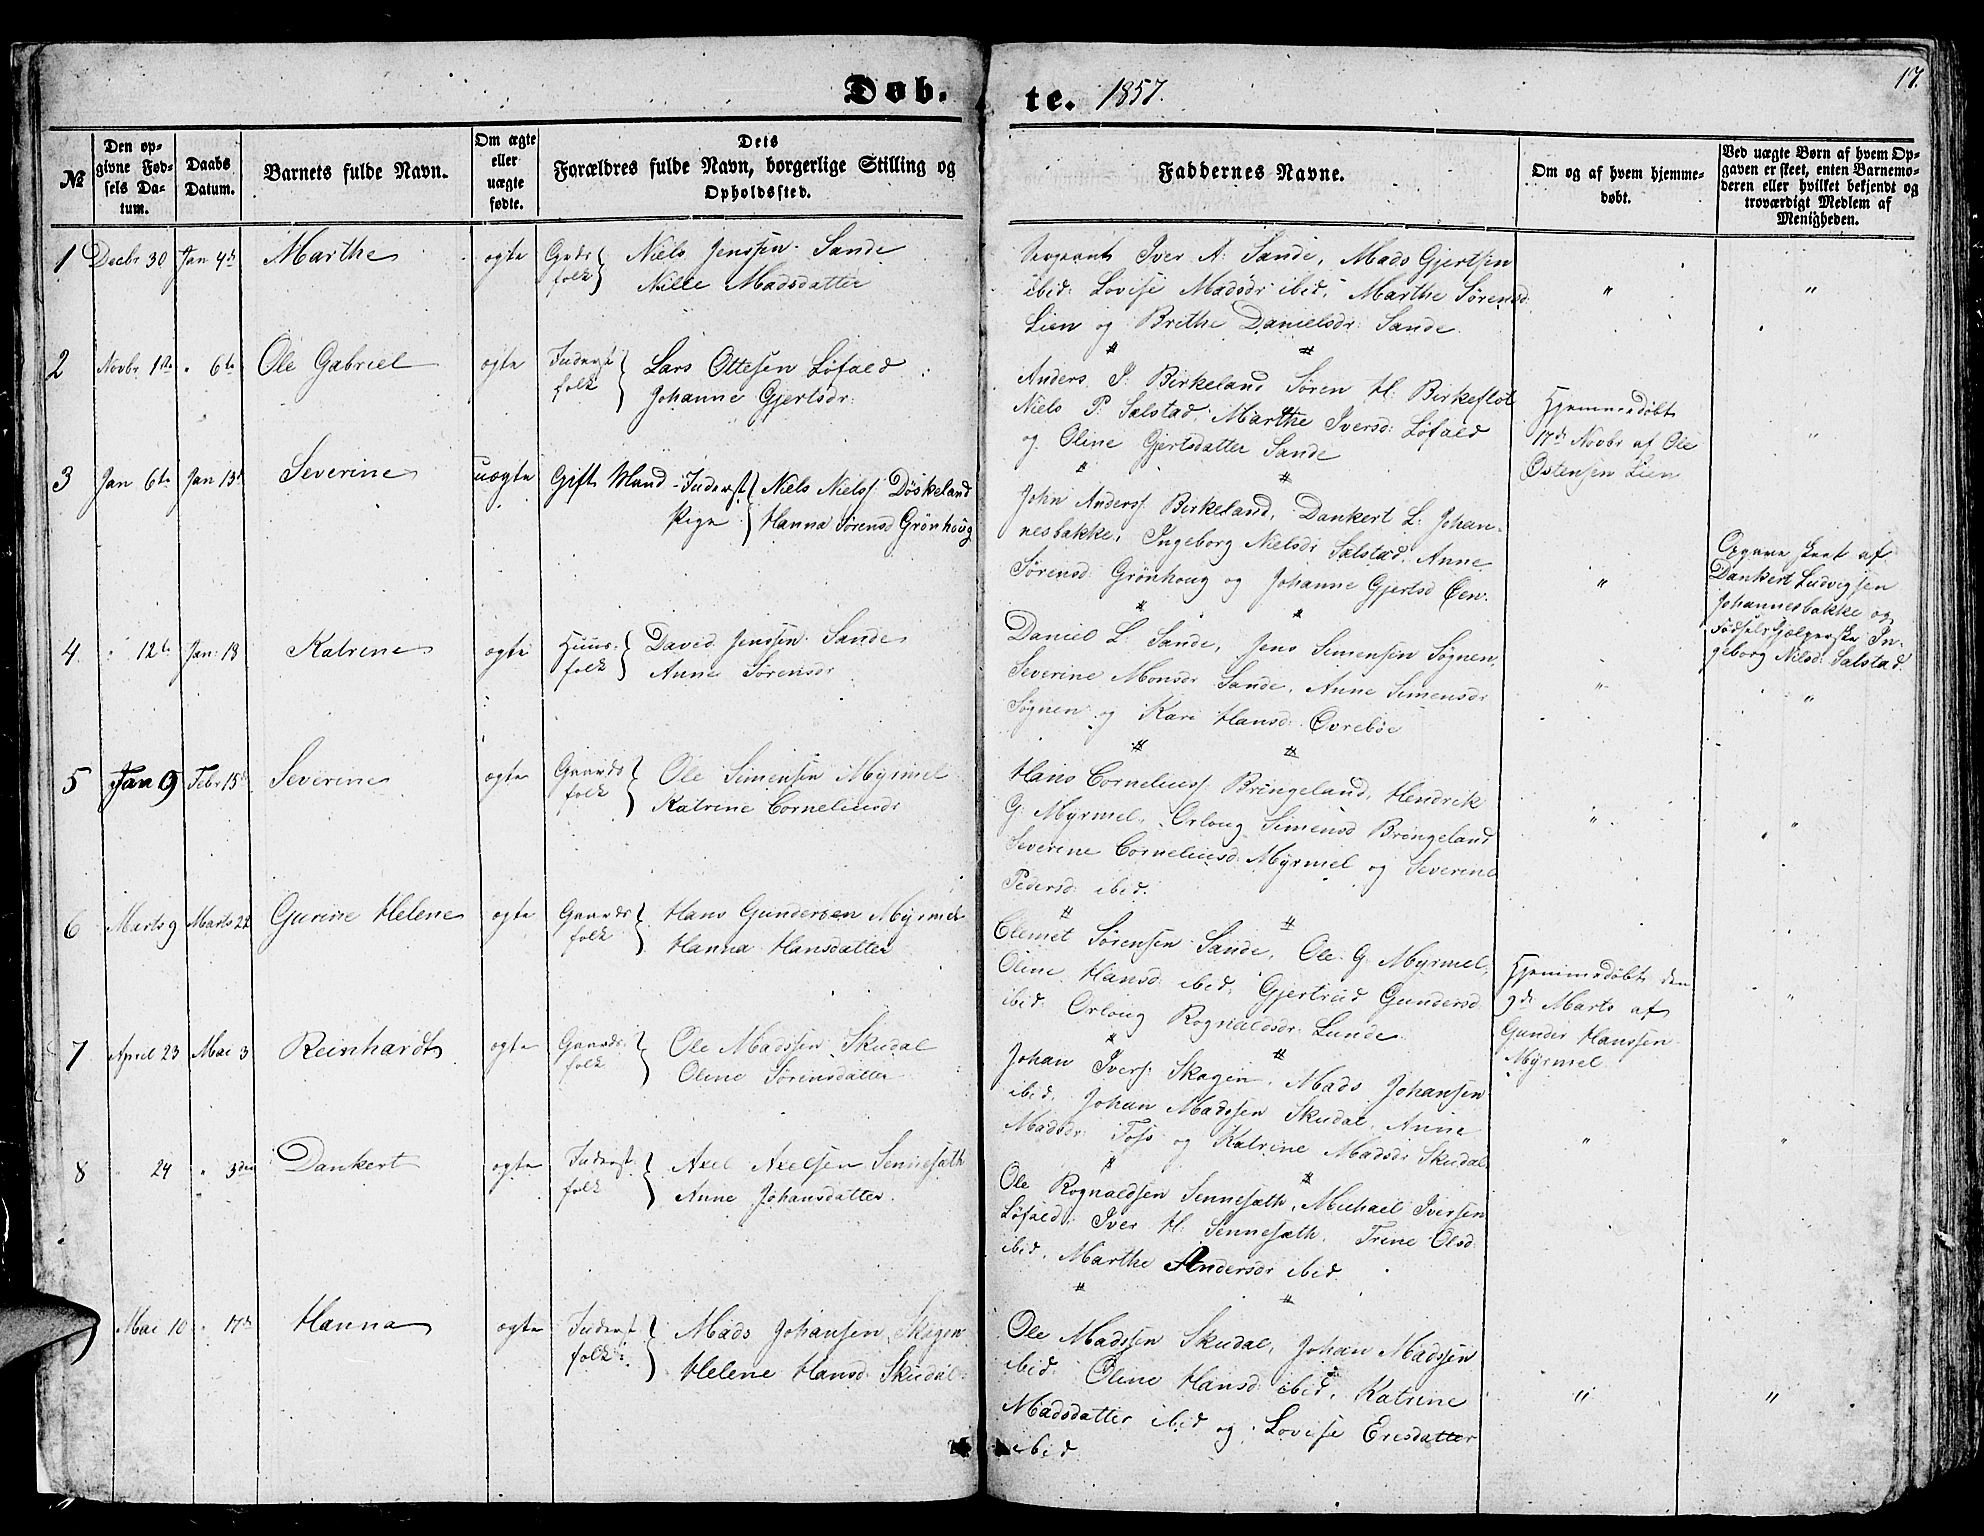 Døb- te. 1857.
17.
No
Den op-
givne Fød-
sels Da-
tum.
Daabs
Datum.
Barnets fulde Navn.
Om ægte
eller
uægte
fødte.
Dets
Forældres fulde Navn, borgerlige Stilling og
Opholdssted.
Faddernes Navne.
Om og af hvem hjemme-
døbt.
Ved uægte Børn af hvem Op-
gaven er skeet, enten Barnemo-
deren eller hvilket bekjendt og
troværdigt Medlem af
Menigheden.
1 Decbr 30 Jan 4de Marthe ægte Grds folk Niels Jenssen Sande
Nille Madsdatter
Sergeant Iver A: Sande, Mads Gjertsen
ibid: Lovise Madsdr ibid, Marthe Sørensd:
Lien og Brithe Danielsdr: Sande
" "
2 Novbr 1ste " 6te Ole Gabriel ægte Inderst folk Lars Ottesen Løfald
Johanne Gjertsdr:
Anders I: Birkeland Søren H: Birkeflot
Niels P: Sælstad, Marthe Iversd: Løfald
og Oline Gjertsdatter Sande
Hjemmedøbt
17de Novbr af Ole
Ostensen Lien
"
3 Jan 6te Jan 13de Severine uægte Gift Mand-Inderst Niels Nielss: Døskeland
Pige Hanna Sørensd Grønhoug
John Anderss: Birkeland, Dankert L: Johan-
nesbakke, Ingeborg Nielsdr Sælstad, Anne
Sørensd: Grønhoug og Johanne Gjertsd Øen.
"
Opgave skeet af
Dankert Ludvigsen
Johannesbakke og
Fødselshjælperske In-
geborg Nilsd: Sælstad.
4 " 12te Jan: 18 Katrine ægte Huus- folk David Jenssen Sande
Anne Sørensdr
Daniel L Sande, Jens Simensen Søgnen,
Severine Monsdr Sande, Anne Simensdr
Søgnen og Kari Hansd: Øvrebøe
" "
5 Jan 9 Febr 15de Severine ægte Gaards folk Ole Simensen Myrmel
Katrine Corneliusdr
Hans Corneliuss: Bringeland, Hendrik
G: Myrmel, Orloug Simensd Bringeland
Severine Corneliusd: Myrmel og Severine
Pedersd: ibid.
" "
6 Marts 9 Marts 22 Gurine Helene ægte Gaards folk Hans Gundersen Myrmel
Hanna Hansdatter
Clemet Sørensen Sande, Ole G: Myrmel,
Oline Hansd: ibid, Gjertrud Gundersd:
ibid: Orloug Rognaldsdr: Lunde
Hjemmedøbt den
9de Marts af
Gunder Hanssen
Myrmel
"
7 April 23 Mai 3 Reinhardt ægte Gaards folk Ole Madssen Skudal
Oline Sørensdatter
Johan Iverss: Skagen, Mads Johansen
ibid, Johan Madssen Skudal, Anne
Madsdr: Foss og Katrine Madsdr Skudal
" "
8 24 " 3den Dankert ægte Inderst folk Axel Axelsen Sennesæth
Anne Johansdatter
Ole Rognaldsen Sennesæth, Michael Iversen
Løfald, Iver H: Sennesæth, Trine Olsd:
ibid, Marthe Andersdr ibid.
Mai 10 " 17de Hanna ægte Inderst folk Mads Johansen Skagen
Helene Hansd: Skudal
Ole Madssen Skudal, Johan Madssen
ibid: Oline Hansd: ibid, Katrine
Madsdatter ibid og Lovise
ibid
" "